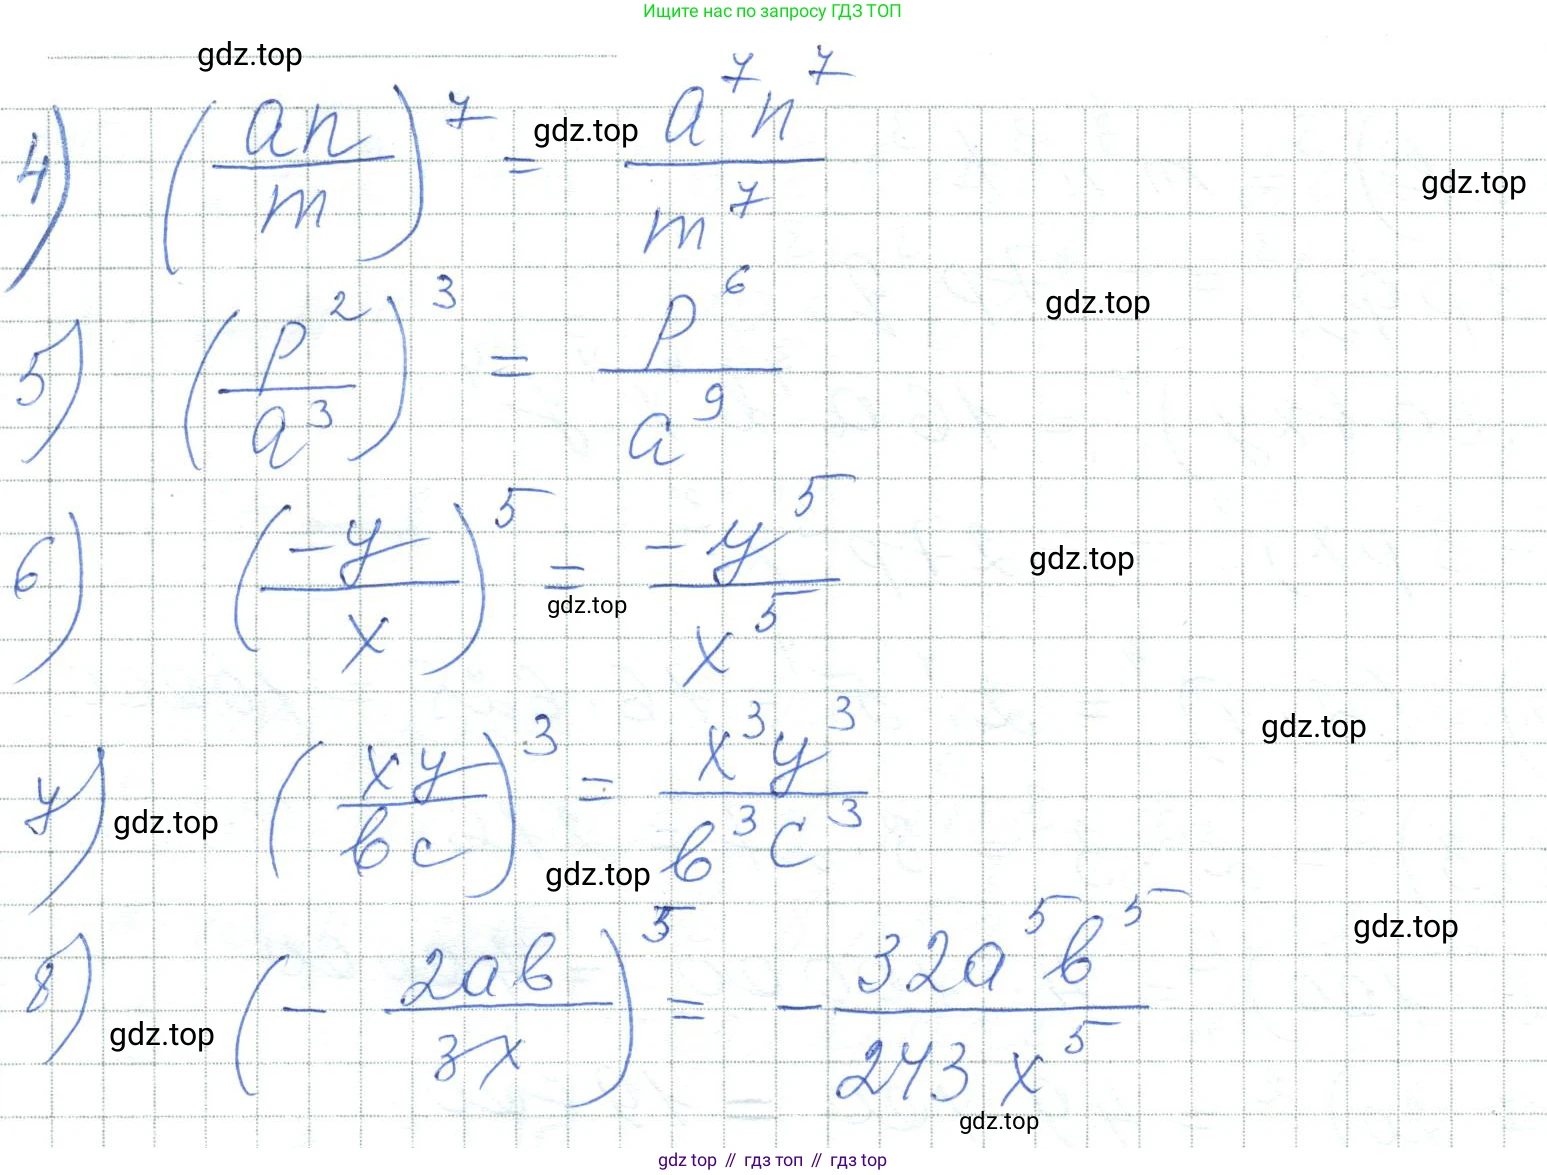 Ищите нас по запросу ГДЗ ТОП
gdz.top
4) (an/m)^7 = a^7n^7/m^7
gdz.top
gdz.top
5) (p^2/a^3)^3 = p^6/a^9
gdz.top
6) (-y/x)^5 = -y^5/x^5
gdz.top
gdz.top
7) (xy/bc)^3 = x^3y^3/b^3c^3
gdz.top
gdz.top
gdz.top
8) (-2ab/3x)^5 = -32a^5b^5/243x^5
gdz.top
gdz.top
gdz.top
gdz top // гдз топ // гдз top